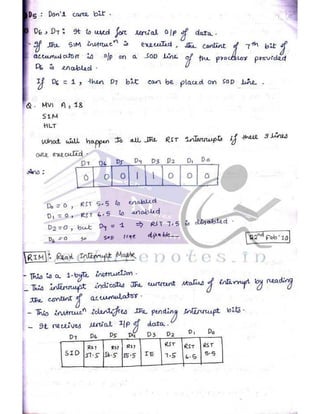 D5 : Don't care bit.
D6, D7 : It is used for serial o/p of data.
- If the SIM instrucn is executed, the content of 7th bit of
accumulator is o/p on a SOD line of the processor provided
D6 is enabled.
If D6 = 1, then D7 bit can be placed on SOD line.
Q. MVI A, 18
SIM
HLT
What will happen to all the RST Interrupts if these 3 lines
are executed.
D7 D6 D5 D4 D3 D2 D1 D0
Ans: 0 0 0 1 1 0 0 0
D0 = 0, RST 5.5 is enabled
D1 = 0, RST 6.5 is enabled
D2 = 0, but D4 = 1 ⇒ RST 7.5 is disabled.
D6 = 0 so SOD line
22nd Feb '10
RIM : Read Interrupt Mask
enotes.in
- This is a 1-byte instruction.
- This interrupt indicates the current status of interrupt by reading
the content of accumulator.
- This instrucn identifies the pending interrupt bits.
- It receives serial I/p of data.
D7 D6 D5 D4 D3 D2 D1 D0
SID RST I7.5 RST I6.5 RST I5.5 IE RST 7.5 RST 6.5 RST 5.5